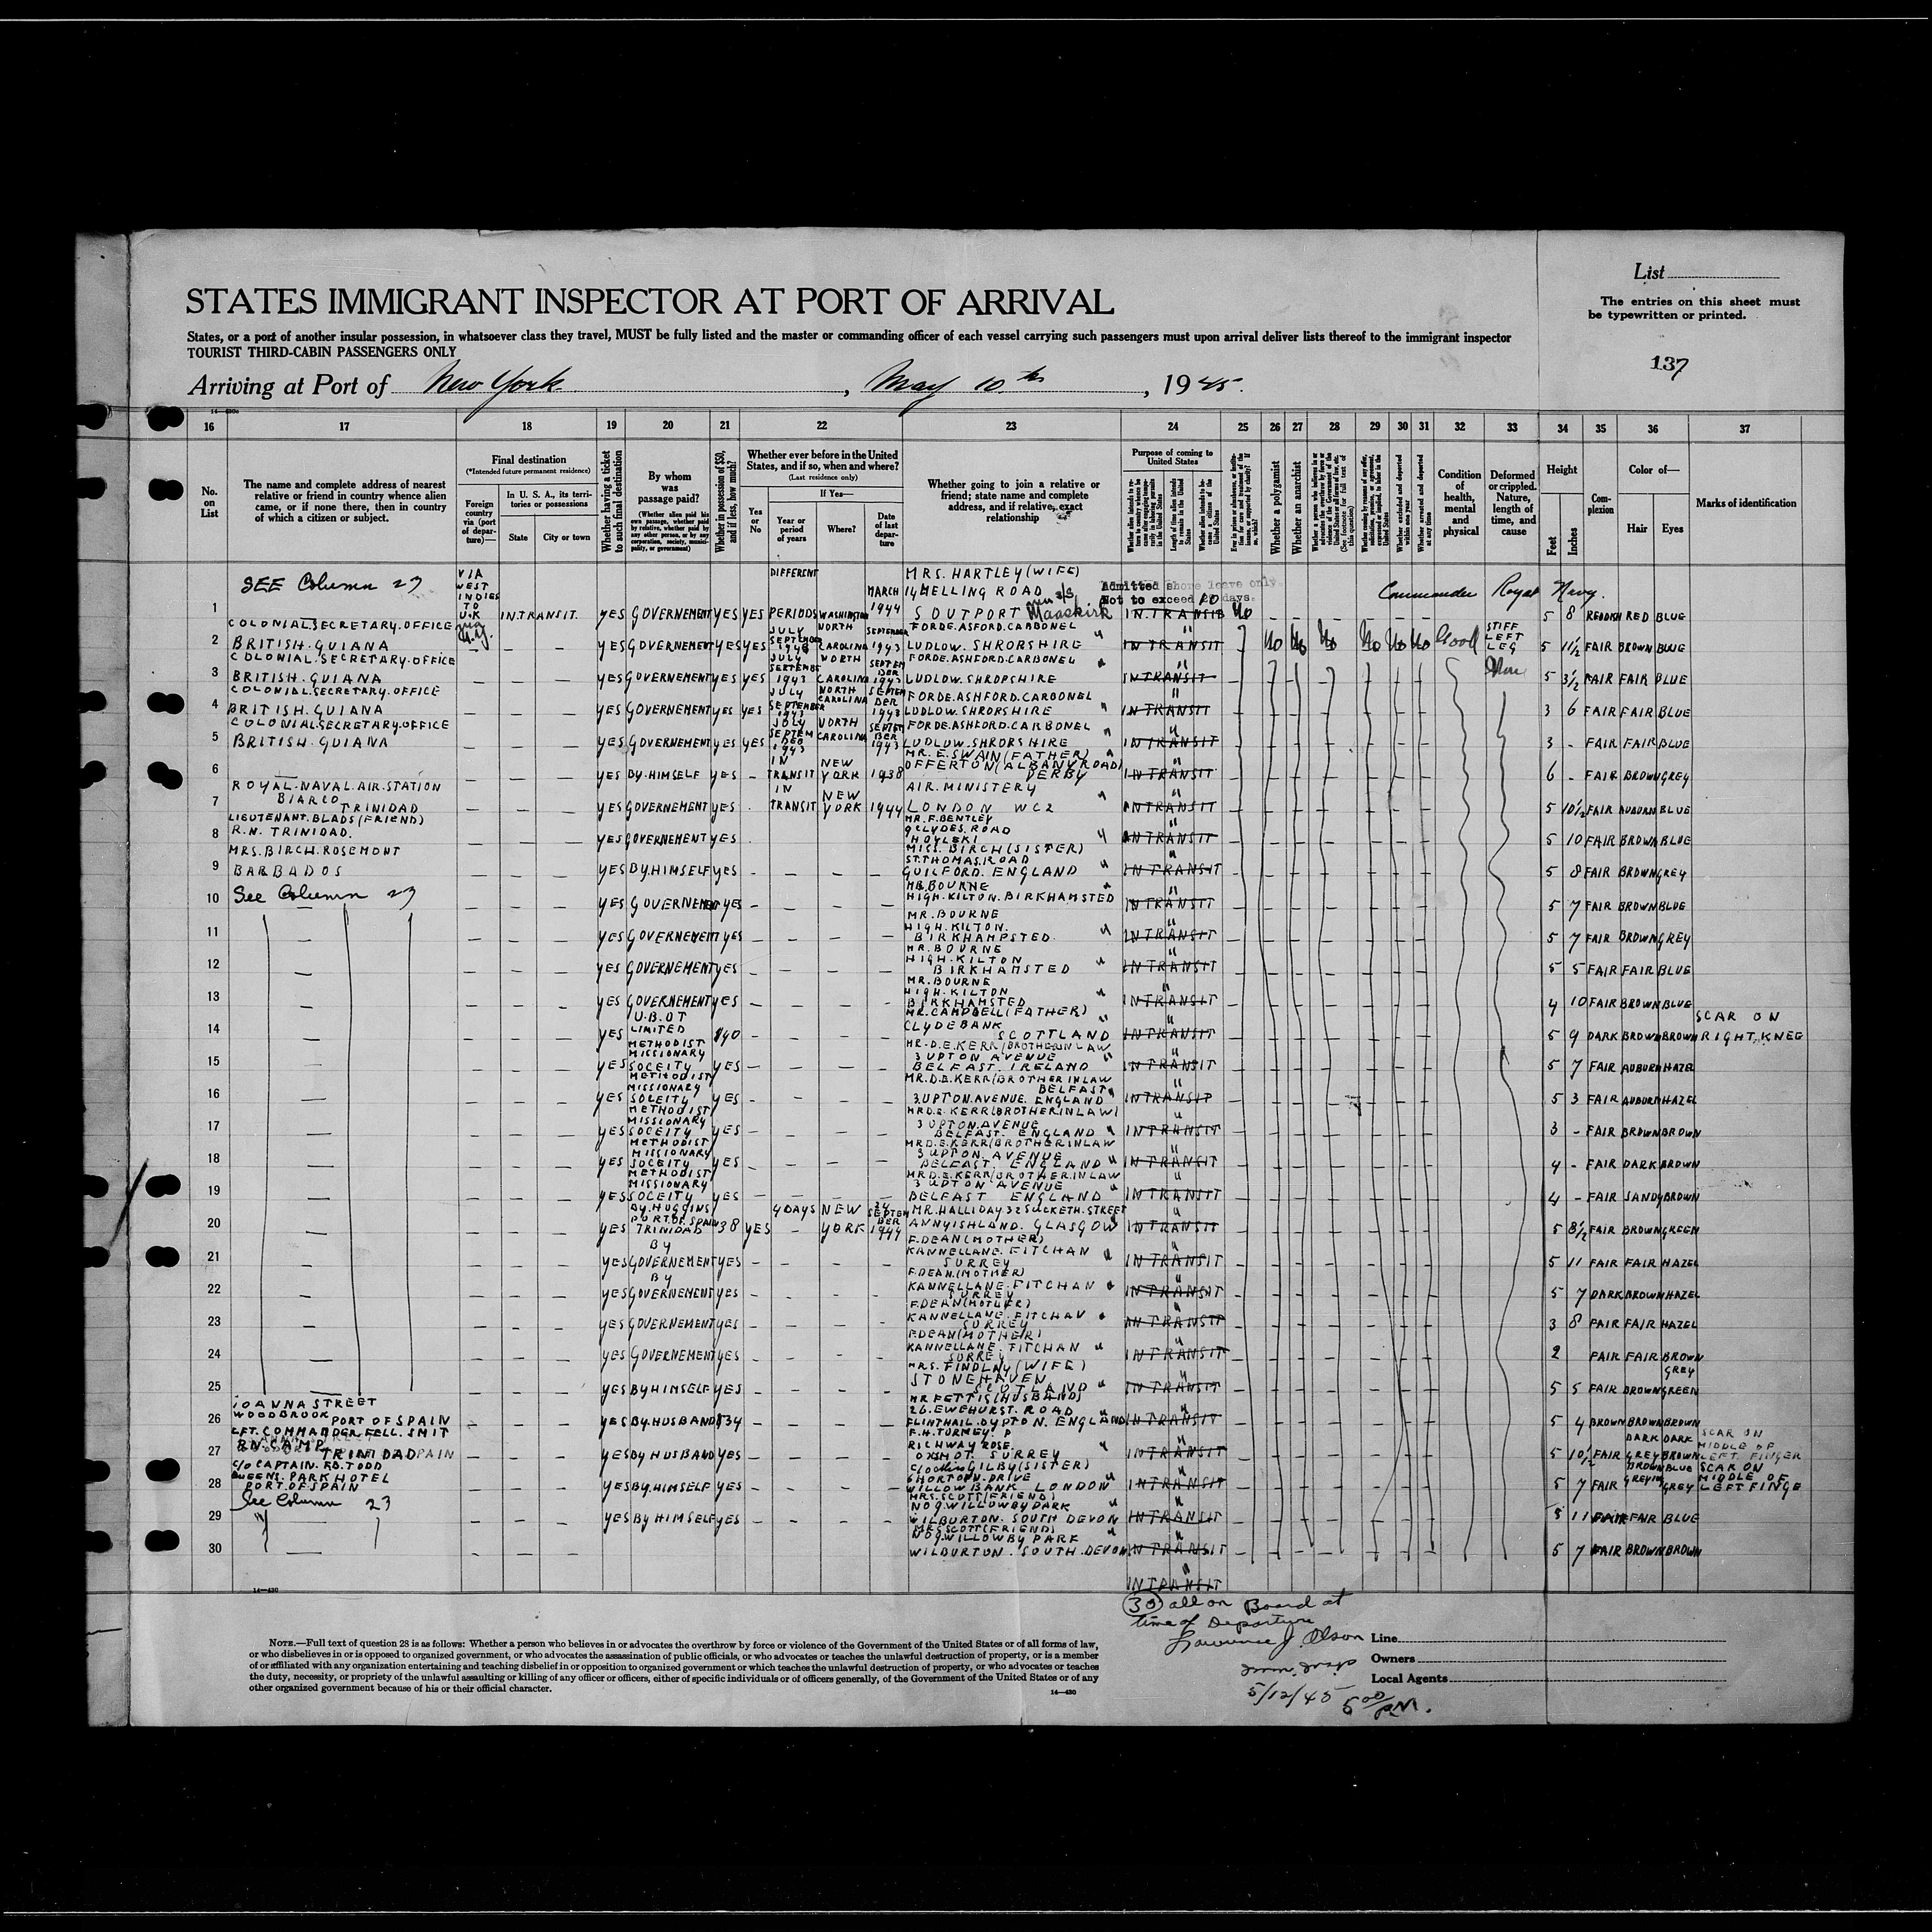 List
The entries on this sheet must
be typewritten or printed.
137
STATES IMMIGRANT INSPECTOR AT PORT OF ARRIVAL
States, or a port of another insular possession, in whatsoever class they travel, MUST be fully listed and the master or commanding officer of each vessel carrying such passengers must upon arrival deliver lists thereof to the immigrant inspector
TOURIST THIRD-CABIN PASSENGERS ONLY
Arriving at Port of New York, May 10th, 1945.
16 17 18 19 20 21 22 23 24 25 26 27 28 29 30 31 32 33 34 35 36 37
No. on List
The name and complete address of nearest relative or friend in country whence alien came, or if none there, then in country of which a citizen or subject.
Final destination
(*Intended future permanent residence)
Foreign country via (port of departure)—
In U. S. A., its territories or possessions
State
City or town
Whether having a ticket to such final destination
By whom was passage paid?
(Whether alien paid his own passage, whether paid by relative, whether paid by any other person, or by any corporation, society, municipality, or government)
Whether in possession of $50, and if less, how much?
Whether ever before in the United States, and if so, when and where?
(Last residence only)
Yes or No
If Yes—
Year or period of years
Where?
Date of last departure
Whether going to join a relative or friend; state name and complete address, and if relative, exact relationship
Purpose of coming to United States
Whether a polygamist
Whether an anarchist
Condition of health, mental and physical
Deformed or crippled. Nature, length of time, and cause
Height
Feet
Inches
Complexion
Color of—
Hair
Eyes
Marks of identification
SEE Column 23
VIA WEST INDIES TO U.K
Admitted shore leave only
Not to exceed 10 days.
Commander Royal Navy.
1 IN TRANSIT. YES GOVERNEMENT YES YES DIFFERENT PERIODS WASHINGTON MARCH 1944 MRS. HARTLEY (WIFE) 14 MELLING ROAD SOUTPORT IN TRANSIT No 5 8 REDDISH RED BLUE
2 COLONIAL SECRETARY. OFFICE BRITISH. GUIANA — — — YES GOVERNEMENT YES YES JULY SEPTEMBER 1943 NORTH CAROLINA SEPTEMBER 1943 FORDE. ASFORD. CARBONEL LUDLOW. SHRORSHIRE " IN TRANSIT No No No No No No Good STIFF LEFT LEG 5 11 1/2 FAIR BROWN BLUE
3 COLONIAL. SECRETARY. OFFICE BRITISH. GUIANA — — — YES GOVERNEMENT YES YES JULY SEPTEMBE 1943 NORTH CAROLINA SEPTEM BER 1943 FORDE. ASHFORD. CARBONEL LUDLOW. SHROPSHIRE " IN TRANSIT 5 3 1/2 FAIR FAIR BLUE
4 COLONIAL. SECRETARY. OFFICE BRITISH. GUIANA — — — YES GOVERNEMENT YES YES JULY SEPTEMBER 1943 NORTH CAROLINA SEPTEM BER 1943 FORDE. ASHFORD. CARBONEL LUDLOW. SHRORSHIRE " IN TRANSIT 3 6 FAIR FAIR BLUE
5 COLONIAL SECRETARY. OFFICE BRITISH. GUIANA — — — YES GOVERNEMENT YES YES JULY SEPTEM BER 1943 NORTH CAROLINA SEPTEM BER 1943 FORDE. ASHFORD. CARBONEL LUDLOW. SHRORSHIRE " IN TRANSIT 3 - FAIR FAIR BLUE
6 — — — — YES BY. HIMSELF YES - IN TRANSIT NEW YORK 1938 MR. E. SWAIN (FATHER) OFFERTON (ALBANY ROAD) DERBY " IN TRANSIT 6 - FAIR BROWN GREY
7 ROYAL. NAVAL. AIR. STATION BIARCO TRINIDAD — — — YES GOVERNEMENT YES IN TRANSIT NEW YORK 1944 AIR. MINISTERY LONDON WC2 " IN TRANSIT 5 10 1/2 FAIR AUBURN BLUE
8 LIEUTENANT. BLADS (FRIEND) R.N. TRINIDAD. — — — YES GOVERNEMENT YES MR. F. BENTLEY 9 CLYDES. ROAD HOYLEKI " IN TRANSIT 5 10 FAIR BROWN BLUE
9 MRS. BIRCH. ROSEMONT BARBADOS — — — YES BY. HIMSELF YES - - - - MISS. BIRCH (SISTER) ST. THOMAS. ROAD GUILFORD. ENGLAND " IN TRANSIT 5 8 FAIR BROWN GREY
10 See Column 23 — — — YES GOVERNEMENT YES - - - - MR. BOURNE HIGH. KILTON. BIRKHAMSTED " IN TRANSIT 5 7 FAIR BROWN BLUE
11 — — — — YES GOVERNEMENT YES - - - - MR. BOURNE HIGH. KILTON. BIRKHAMPSTED. " IN TRANSIT 5 7 FAIR BROWN GREY
12 — — — — YES GOVERNEMENT YES - - - - MR. BOURNE HIGH. KILTON BIRKHAMSTED " IN TRANSIT 5 5 FAIR FAIR BLUE
13 — — — — YES GOVERNEMENT YES - - - - MR. BOURNE HIGH. KILTON BIRKHAMSTED " IN TRANSIT 4 10 FAIR BROWN BLUE
14 — — — — YES U.B.O.T LIMITED $40 - - - - MR. CAMPBELL (FATHER) CLYDEBANK SCOTTLAND " IN TRANSIT 5 9 DARK BROWN BROWN SCAR ON RIGHT. KNEG
15 — — — — YES METHODIST MISSIONARY SOCEITY YES - - - - MR. D.E. KERR (BROTHER IN LAW 3 UPTON AVENUE BELFAST. IRELAND " IN TRANSIT 5 7 FAIR AUBURN HAZEL
16 — — — — YES METHODIST MISSIONARY SOCEITY YES - - - - MR. D.E. KERR (BROTHER INLAW BELFAST 3. UPTON. AVENUE. ENGLAND " IN TRANSIT 5 3 FAIR AUBURN HAZEL
17 — — — — YES METHODIST MISSIONARY SOCEITY YES - - - - MR D.E. KERR (BROTHER. IN LAW) 3 UPTON. AVENUE BELFAST. ENGLAND " IN TRANSIT 3 - FAIR BROWN BROWN
18 — — — — YES METHODIST MISSIONARY SOCEITY YES - - - - MR D.E. KERR (BROTHER INLAW 3 UPTON. AVENUE BELFAST. ENGLAND " IN TRANSIT 4 - FAIR DARK BROWN
19 — — — — YES METHODIST MISSIONARY SOCEITY YES - - - - MR D.E. KERR (BROTHER. IN LAW 3 UPTON AVENUE BELFAST ENGLAND " IN TRANSIT 4 - FAIR SANDY BROWN
20 — — — — YES BY. HUGGINS PORT. OF. SPAIN TRINIDAD 38 YES 4 DAYS NEW YORK 24 SEPTEM BER 1944 MR. HALLIDAY 32 SUCKETH. STREET ANNYISHLAND. GLASGOW " IN TRANSIT 5 8 1/2 FAIR BROWN GREEN
21 — — — — YES BY GOVERNEMENT YES - - - - F. DEAN (MOTHER) KANNELLANE. FITCHAN SURREY " IN TRANSIT 5 11 FAIR FAIR HAZEL
22 — — — — YES BY GOVERNEMENT YES - - - - F. DEAN. (MOTHER) KANNELLANE. FITCHAN SURREY " IN TRANSIT 5 7 DARK BROWN HAZEL
23 — — — — YES GOVERNEMENT YES - - - - F. DEAN (MOTHER) KANNELLANE. FITCHAN SURREY " IN TRANSIT 3 8 FAIR FAIR HAZEL
24 — — — — YES GOVERNEMENT YES - - - - F. DEAN (MOTHER) KANNELLANE. FITCHAN SURREY " IN TRANSIT 2 FAIR FAIR BROWN
25 — — — — YES BY HIMSELF YES - - - - MRS. FINDLAY (WIFE) STONEHAVEN SCOTLAND " IN TRANSIT 5 5 FAIR BROWN GREY GREEN
26 10 ANNA STREET WOODBROOK PORT OF SPAIN — — — YES BY. HUSBAND $34 - - - - MR FETTIS (HUSBAND) 26. EWEHURST. ROAD FLINTHAIL. DYPTON. ENGLAND IN TRANSIT 5 4 BROWN BROWN BROWN
27 LFT. COMMANDDER. FELL. SMIT R.N. CAMP TRINIDAD — — — YES BY HUSBAND YES - - - - F.H. TORMEY. P RICHWAY ROSE. OXSHOT SURREY " IN TRANSIT 5 10 1/2 FAIR DARK GREY DARK BROWN SCAR ON MIDDLE OF LEFT FINGER
28 c/o CAPTAIN. F.B. TODD QUEENS. PARK HOTEL PORT. OF SPAIN — — — YES BY. HIMSELF YES - - - - GILBY (SISTER) 6 HORTOFN. DRIVE WILLOW BANK LONDON " IN TRANSIT 5 7 FAIR BROWN GREYING BLUE GREY SCAR ON MIDDLE OF LEFT FINGE
29 See Column 23 — — — YES BY HIMSELF YES - - - - MRS. SCOTT (FRIEND) NO 9. WILLOWBY PARK WILBURTON. SOUTH DEVON " IN TRANSIT 5 11 FAIR FAIR BLUE
30 — — — — - - - - MRS SCOTT (FRIEND) NO 9. WILLOWBY PARK WILBURTON. SOUTH. DEVON " IN TRANSIT 5 7 FAIR BROWN BROWN
" IN TRANSIT
30 all on Board at
time of Departure
Lawrence J. Olson
Imm. Insp
5/12/45 5 00 PM.
Line
Owners
Local Agents
NOTE.—Full text of question 28 is as follows: Whether a person who believes in or advocates the overthrow by force or violence of the Government of the United States or of all forms of law,
or who disbelieves in or is opposed to organized government, or who advocates the assassination of public officials, or who advocates or teaches the unlawful destruction of property, or is a member
of or affiliated with any organization entertaining and teaching disbelief in or opposition to organized government or which teaches the unlawful destruction of property, or who advocates or teaches
the duty, necessity, or propriety of the unlawful assaulting or killing of any officer or officers, either of specific individuals or of officers generally, of the Government of the United States or of any
other organized government because of his or their official character.
14—430